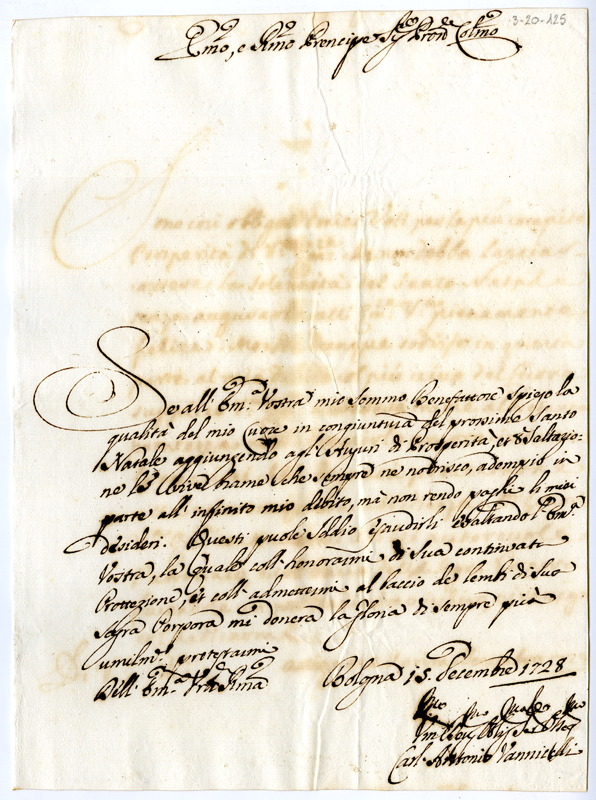 3-20-125
Emo, e Rmo Prencipe Sig Pron Colmo
Se all' Emª Vostra mio sommo Benefattore spiego la
qualità del mio Cuore in congiuntura del prossimo Santo
Natale aggiungendo agl' Auguri di Prosperità, et Esaltazio-
ne le brame che sempre ne nodrisco, adempio in
parte all' infinito mio debito, mà non rendo paghi li miei
desideri. Questi puole Iddio Esaudirli Esaltando l' Emª
Vostra, la Quale coll' honorarmi di sua continuata
Prottezione, et coll' admettermi al baccio de lembi di Sua
Sagra Porpora mi donerà la gloria di sempre più
umilmᵉ protestarmi
Dell' Emª Vrª Rmª
Bologna 15. Decembre 1728
Carl' Antonio Vannicelli